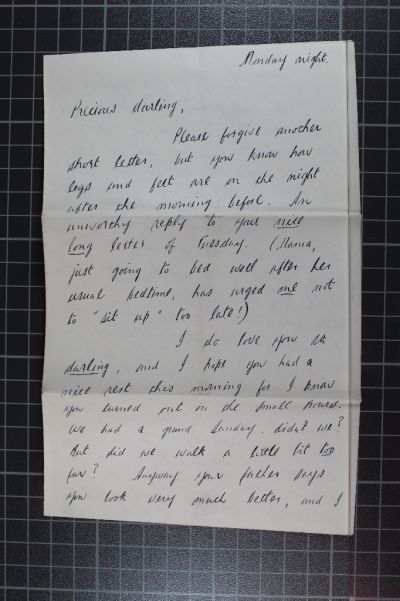 Monday night.
Precious darling,
Please forgive another
short letter, but you know how
legs and feet are on the night
after the morning before. An
unworthy reply to your nice
long letter of Tuesday. (Mama,
just going to bed well after her
usual bedtime, has urged me not
to "sit up" too late!)
I do love you so
darling, and I hope you had a
nice rest this morning for I know
you turned out in the small hours.
We had a grand Sunday, didn't we?
But did we walk a little bit too
far? Anyway your father says
you look very much better, and I